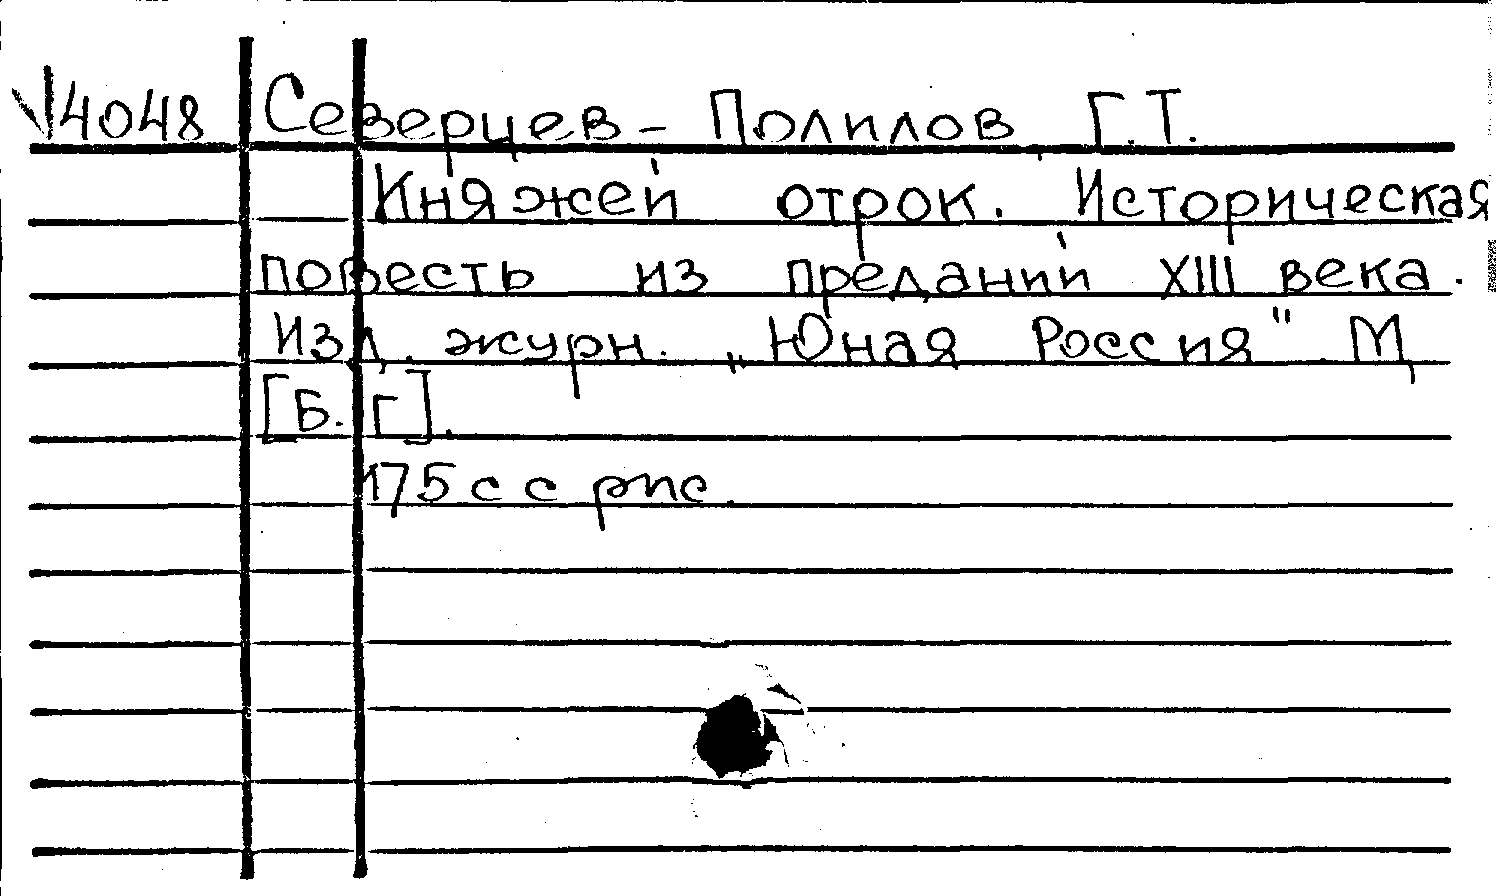 14048 Северцев-Полилов, Г.Т.
Княжей отрок. Историческая
повесть из преданий XIII века.
Изд. журн. „Юная Россия" М,
[Б.г].
175 с с рис.